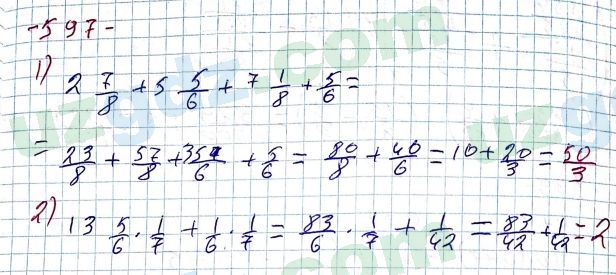 -597-
1) 2 7/8 + 5 5/6 + 7 1/8 + 5/6 =
= 23/8 + 57/8 + 35/6 + 5/6 = 80/8 + 40/6 = 10 + 20/3 = 50/3
2) 13 5/6 · 1/7 + 1/6 · 1/7 = 83/6 · 1/7 + 1/42 = 83/42 + 1/42 = 2